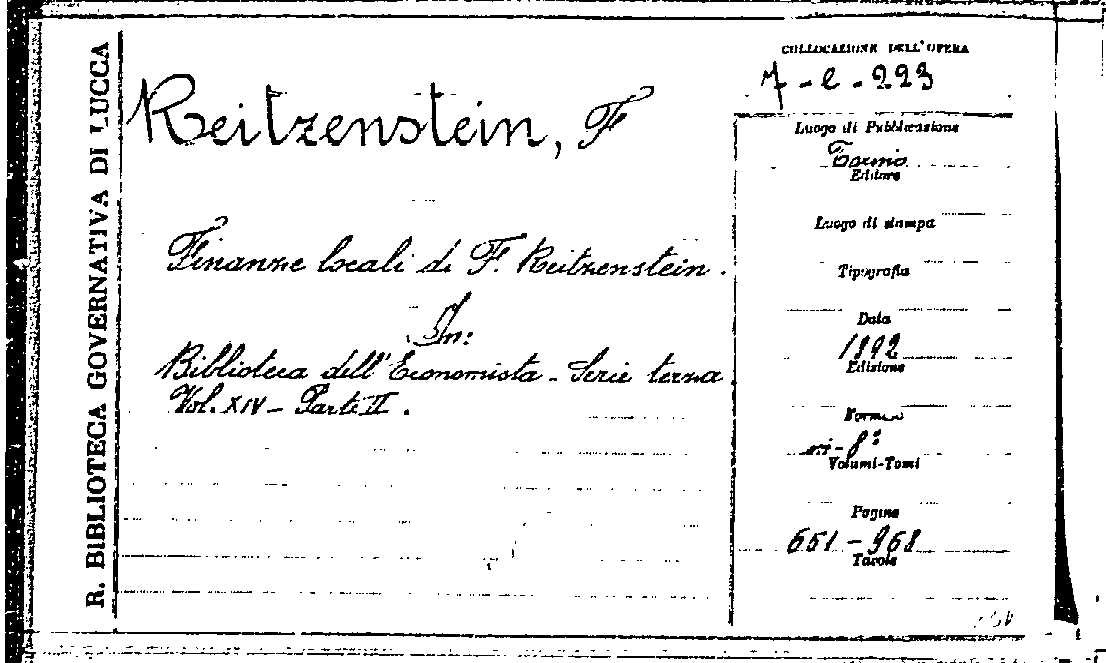 R. BIBLIOTECA GOVERNATIVA DI LUCCA
Reitzenstein, F
Finanze locali di F. Reitzenstein.
In:
Biblioteca dell'Economista - Serie terza
Vol. XIV - Parte II.
COLLOCAZIONE DELL'OPERA
7-e-223
Luogo di Pubblicazione
Torino
Editore
Luogo di stampa
Tipografia
Data
1892
Edizione
Formato
in-8°
Volumi-Tomi
Pagine
651-968
Tavole